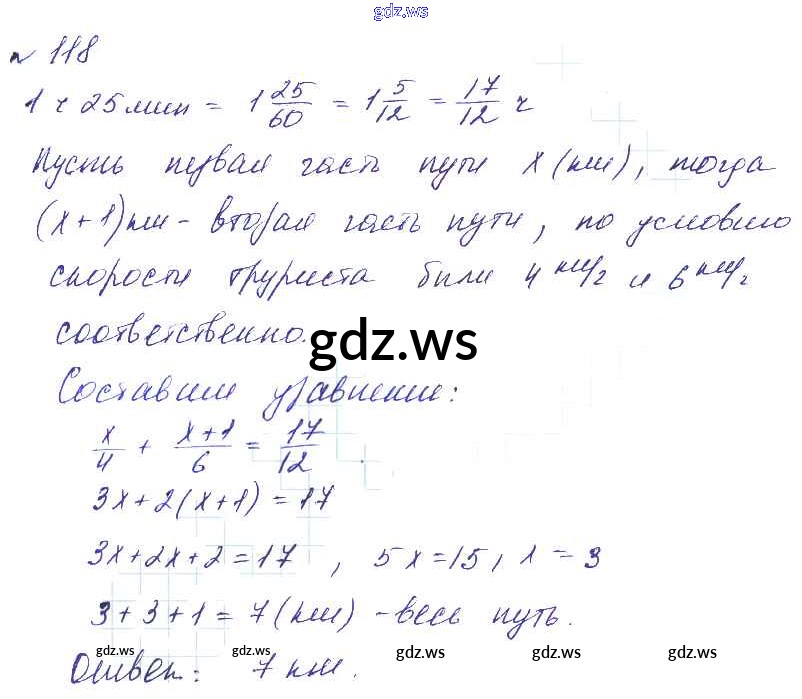 gdz.ws
№ 118
1 ч 25 мин = 1 25/60 = 1 5/12 = 17/12 ч
Пусть первая часть пути x (км), тогда
(x+1) км - вторая часть пути, по условию
скорости туриста были 4 км/ч и 6 км/ч
соответственно.
gdz.ws
Составим уравнение:
x/4 + x+1/6 = 17/12
3x+2(x+1)=17
3x+2x+2=17, 5x=15, x=3
3+3+1=7(км) - весь путь.
gdz.ws gdz.ws gdz.ws gdz.ws
Ответ: 7 км.